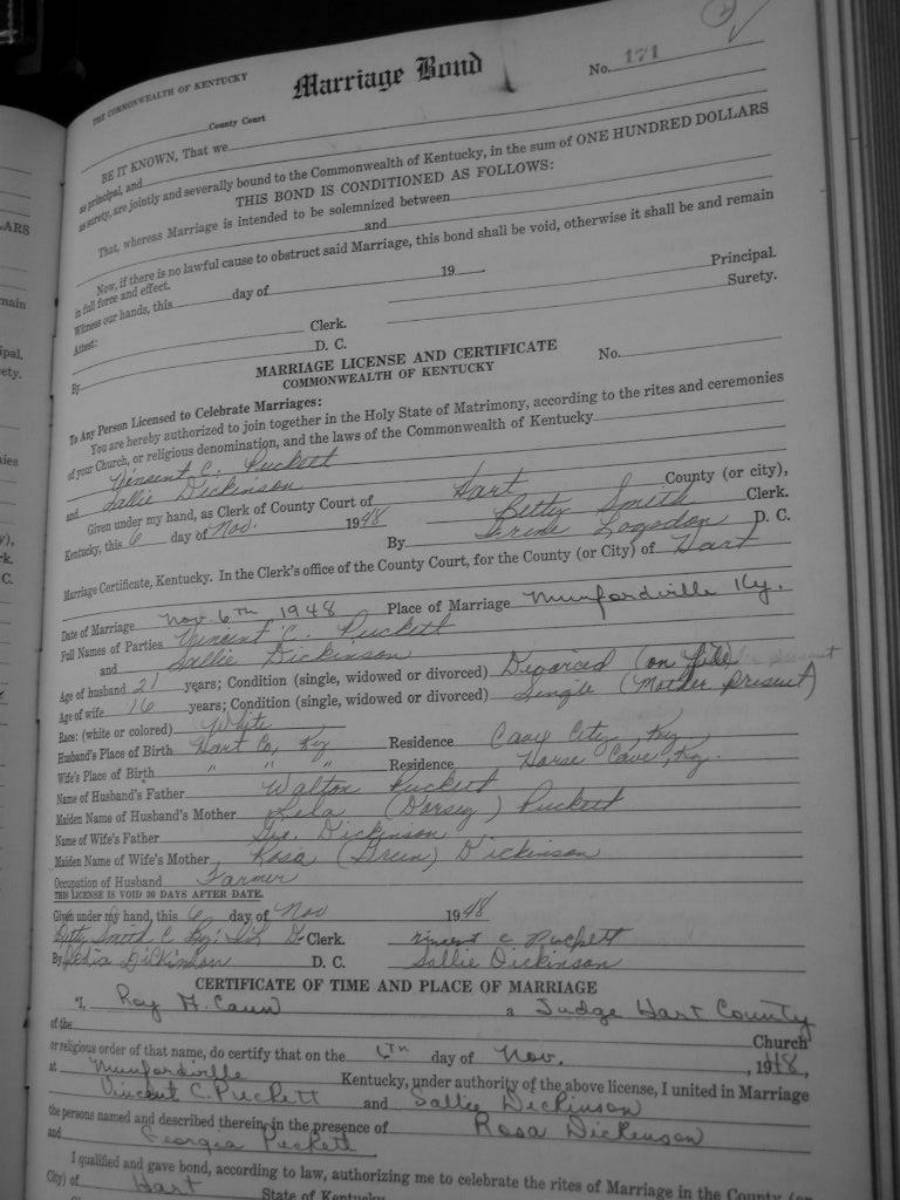 THE COMMONWEALTH OF KENTUCKY
Marriage Bond
No. 171
County Court
BE IT KNOWN, That we
as principal, and
as surety, are jointly and severally bound to the Commonwealth of Kentucky, in the sum of ONE HUNDRED DOLLARS
THIS BOND IS CONDITIONED AS FOLLOWS:
That, whereas Marriage is intended to be solemnized between
and
Now, if there is no lawful cause to obstruct said Marriage, this bond shall be void, otherwise it shall be and remain
in full force and effect.
Witness our hands, this day of 19
Principal.
Surety.
Attest:
Clerk.
By D. C.
MARRIAGE LICENSE AND CERTIFICATE
COMMONWEALTH OF KENTUCKY
No.
To Any Person Licensed to Celebrate Marriages:
You are hereby authorized to join together in the Holy State of Matrimony, according to the rites and ceremonies
of your Church, or religious denomination, and the laws of the Commonwealth of Kentucky
Vinsent C. Puckett
and Sallie Dickinson
Given under my hand, as Clerk of County Court of Hart County (or city),
Kentucky, this 6 day of Nov. 1948 Betty Smith Clerk.
By Irene Logsdon D. C.
Marriage Certificate, Kentucky. In the Clerk's office of the County Court, for the County (or City) of Hart
Date of Marriage Nov. 6TH 1948 Place of Marriage Munfordville Ky.
Full Names of Parties Vincent C. Puckett
and Sallie Dickinson
Age of husband 21 years; Condition (single, widowed or divorced) Divorced (on file)
Age of wife 16 years; Condition (single, widowed or divorced) Single (Mother present)
Race: (white or colored) White
Husband's Place of Birth Hart Co, Ky Residence Cave City, Ky.
Wife's Place of Birth " " " Residence Horse Cave, Ky.
Name of Husband's Father Walton Puckett
Maiden Name of Husband's Mother Lela (Dorsey) Puckett
Name of Wife's Father Geo. Dickinson
Maiden Name of Wife's Mother Rosa (Green) Dickinson
Occupation of Husband Farmer
THIS LICENSE IS VOID 30 DAYS AFTER DATE.
Given under my hand, this 6 day of Nov 1948
Betty Smith C Clerk. Vincent C Puckett
By Dickinson D. C. Sallie Dickinson
CERTIFICATE OF TIME AND PLACE OF MARRIAGE
I, Roy A. Cann a Judge Hart County
of the Church
or religious order of that name, do certify that on the 6TH day of Nov. , 1948,
at Munfordville Kentucky, under authority of the above license, I united in Marriage
Vincent C. Puckett and Sallie Dickinson
the persons named and described therein, in the presence of Rosa Dickenson
and Georgia Puckett
I qualified and gave bond, according to law, authorizing me to celebrate the rites of Marriage in the County (or
City) of Hart State of Kentucky